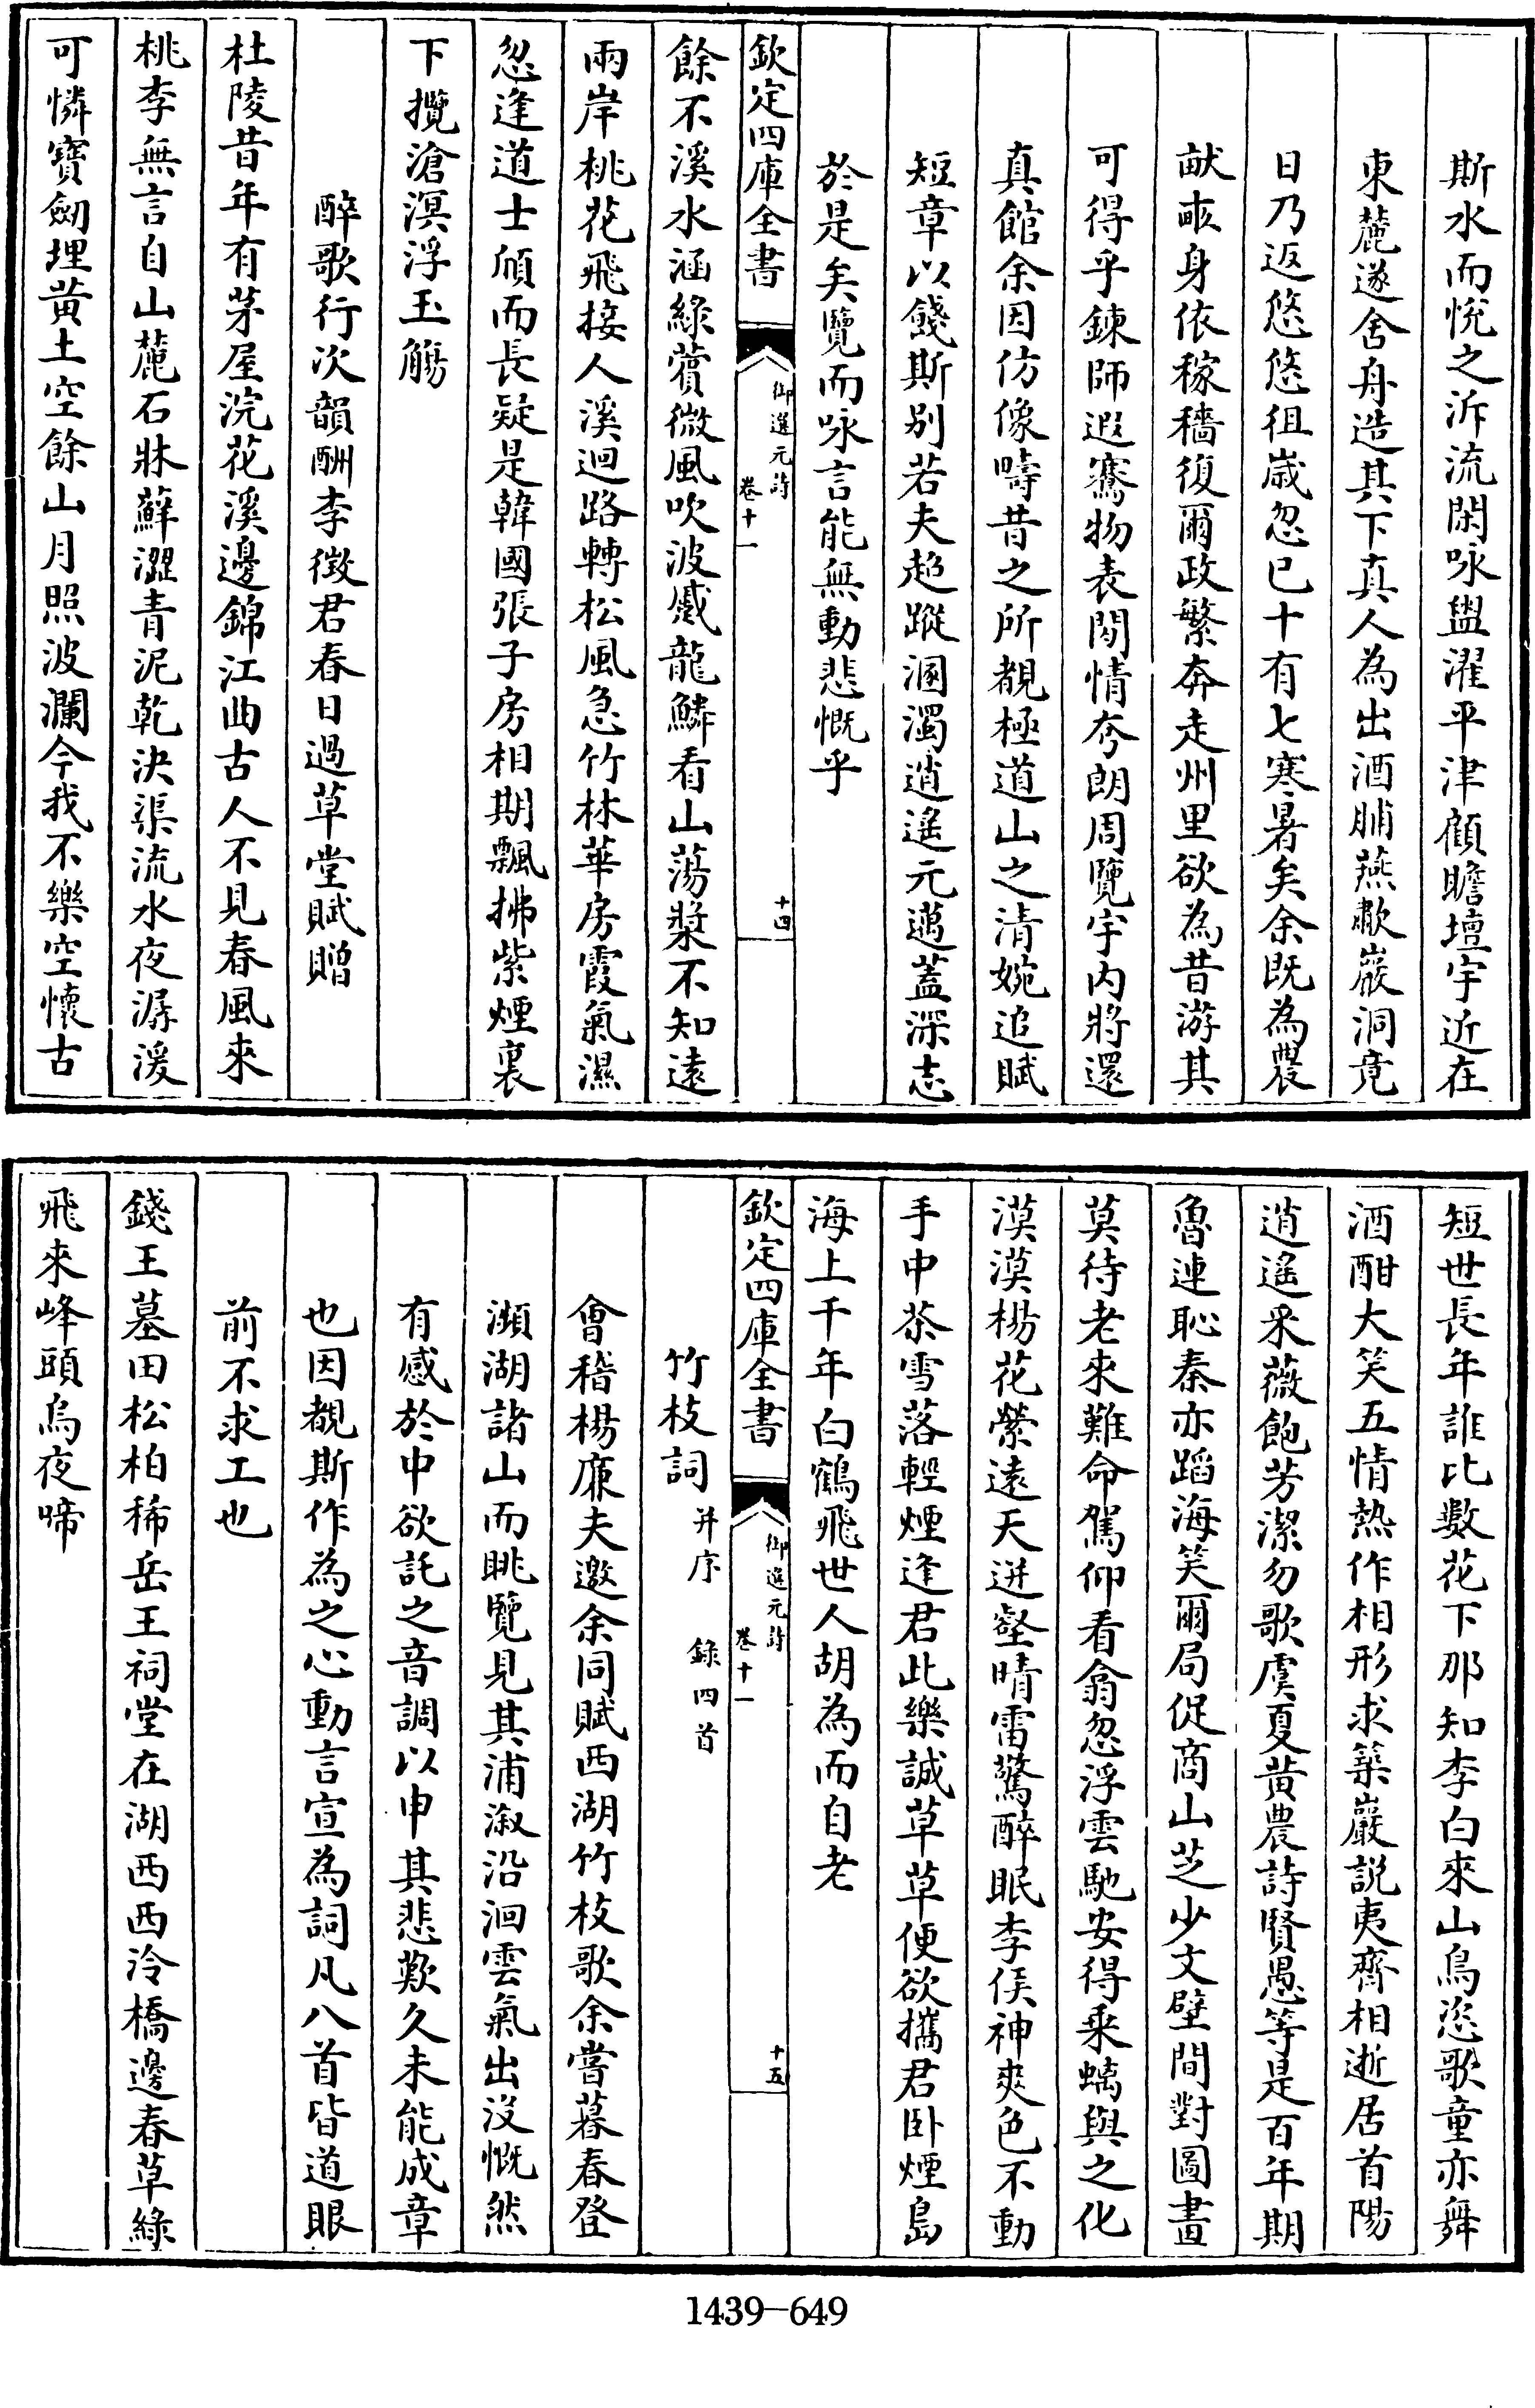 斯水而悅之泝流閑咏盥濯平津顧瞻壇宇近在
東麓遂舍舟造其下真人為出酒脯燕歗巖洞竟
日乃返悠悠徂歳忽已十有七寒暑矣余既為農
畎畝身依稼穡復爾政繁奔走州里欲為昔游其
可得乎鍊師遐騫物表閒情夸朗周覽宇内將還
真館余因仿像疇昔之所覩極道山之清婉追賦
短章以餞斯别若夫超蹤溷濁逍遙元邁蓋深志
於是矣覽而咏言能無動悲慨乎
欽定四庫全書
御選元詩
卷十一
十四
餘不溪水涵綠薲微風吹波蹙龍鱗看山蕩槳不知遠
兩岸桃花飛接人溪迴路轉松風急竹林華房霞氣濕
忽逢道士頎而長疑是韓國張子房相期飄拂紫煙裏
下攬滄溟浮玉觴
醉歌行次韻酬李徵君春日過草堂賦贈
杜陵昔年有茅屋浣花溪邊錦江曲古人不見春風來
桃李無言自山麓石牀蘚澀青泥乾決渠流水夜潺湲
可憐寶劒埋黃土空餘山月照波瀾今我不樂空懷古
短世長年誰比數花下那知李白來山鳥恣歌童亦舞
酒酣大笑五情熱作相形求築巖説夷齊相逝居首陽
逍遙采薇飽芳潔勿歌虞夏黃農詩賢愚等是百年期
魯連恥秦亦蹈海笑爾局促商山芝少文壁間對圖畫
莫待老來難命駕仰看翕忽浮雲馳安得乘螭與之化
漠漠楊花縈遠天迸壑晴雷驚醉眠李侯神爽色不動
手中茶雪落輕煙逢君此樂誠草草便欲攜君卧煙島
海上千年白鶴飛世人胡為而自老
欽定四庫全書
御選元詩
卷十一
十五
竹枝詞 并序 錄四首
會稽楊廉夫邀余同賦西湖竹枝歌余嘗暮春登
瀕湖諸山而眺覽見其浦溆沿洄雲氣出沒慨然
有感於中欲託之音調以申其悲歎久未能成章
也因覩斯作為之心動言宣為詞凡八首皆道眼
前不求工也
錢王墓田松柏稀岳王祠堂在湖西西泠橋邊春草綠
飛來峰頭烏夜啼
1439—649